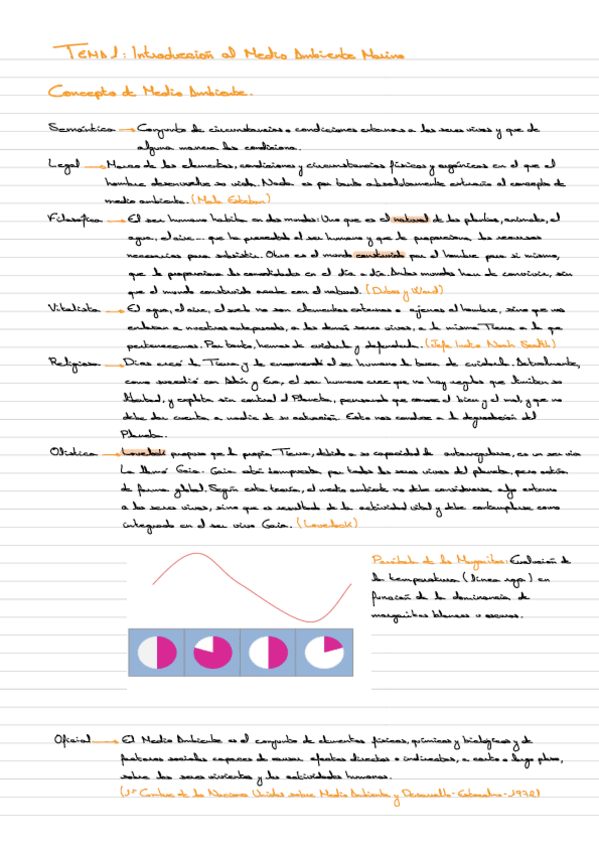 TEMA 1: Introducción al Medio Ambiente Marino
Concepto de Medio Ambiente.
Semántica → Conjunto de circunstancias o condiciones externas a los seres vivos y que de
alguna manera los condiciona.
Legal → Marco de los elementos, condiciones y circunstancias físicas y orgánicas en el que el
hombre desenvuelve su vida. Nada es por tanto absolutamente extraño al concepto de
medio ambiente. (Malo Esteban)
Filosófica → El ser humano habita en dos mundos: Uno que es el natural de las plantas, animales, el
agua, el aire... que ha precedido al ser humano y que le proporciona los recursos
necesarios para subsistir. Otro es el mundo construido por el hombre para si mismo,
que le proporciona las comodidades en el día a día. Ambos mundos han de convivir, sin
que el mundo construido acabe con el natural. (Dubos y Ward)
Vitalista → El agua, el aire, el suelo no son elementos externos o ajenos al hombre, sino que nos
enlazan a nuestros antepasados, a los demás seres vivos, a la misma Tierra a la que
pertenecemos. Por tanto, hemos de cuidarla y defenderla. (Jefe Indio Noah Sealth)
Religiosa → Dios creó la Tierra y le encomendó al ser humano la tarea de cuidarla. Actualmente,
como sucedió con Adán y Eva, el ser humano cree que no hay reglas que limiten su
libertad, y explota sin control el Planeta, pensando que conoce el bien y el mal, y que no
debe dar cuenta a nadie de su actuación. Esto nos conduce a la degradación del
Planeta.
Olística → Lovelock propuso que la propia Tierra, debido a su capacidad de autorregularse, es un ser vivo
La llamó Gaia. Gaia está compuesta por todos los seres vivos del planeta, pero actúa
de forma global. Según esta teoría, el medio ambiente no debe considerarse algo externo
a los seres vivos, sino que es resultado de la actividad vital y debe contemplarse como
integrado en el ser vivo Gaia. (Lovelock)
Parábola de las Margaritas: Evolución de
la temperatura (línea roja) en
función de la dominancia de
margaritas blancas u oscuras.
Oficial → El Medio Ambiente es el conjunto de elementos físicos, químicos y biológicos y de
factores sociales capaces de causar efectos directos o indirectos, a corto o largo plazo,
sobre los seres vivientes y las actividades humanas.
(1ª Cumbre de las Naciones Unidas sobre Medio Ambiente y Desarrollo - Estocolmo - 1972)